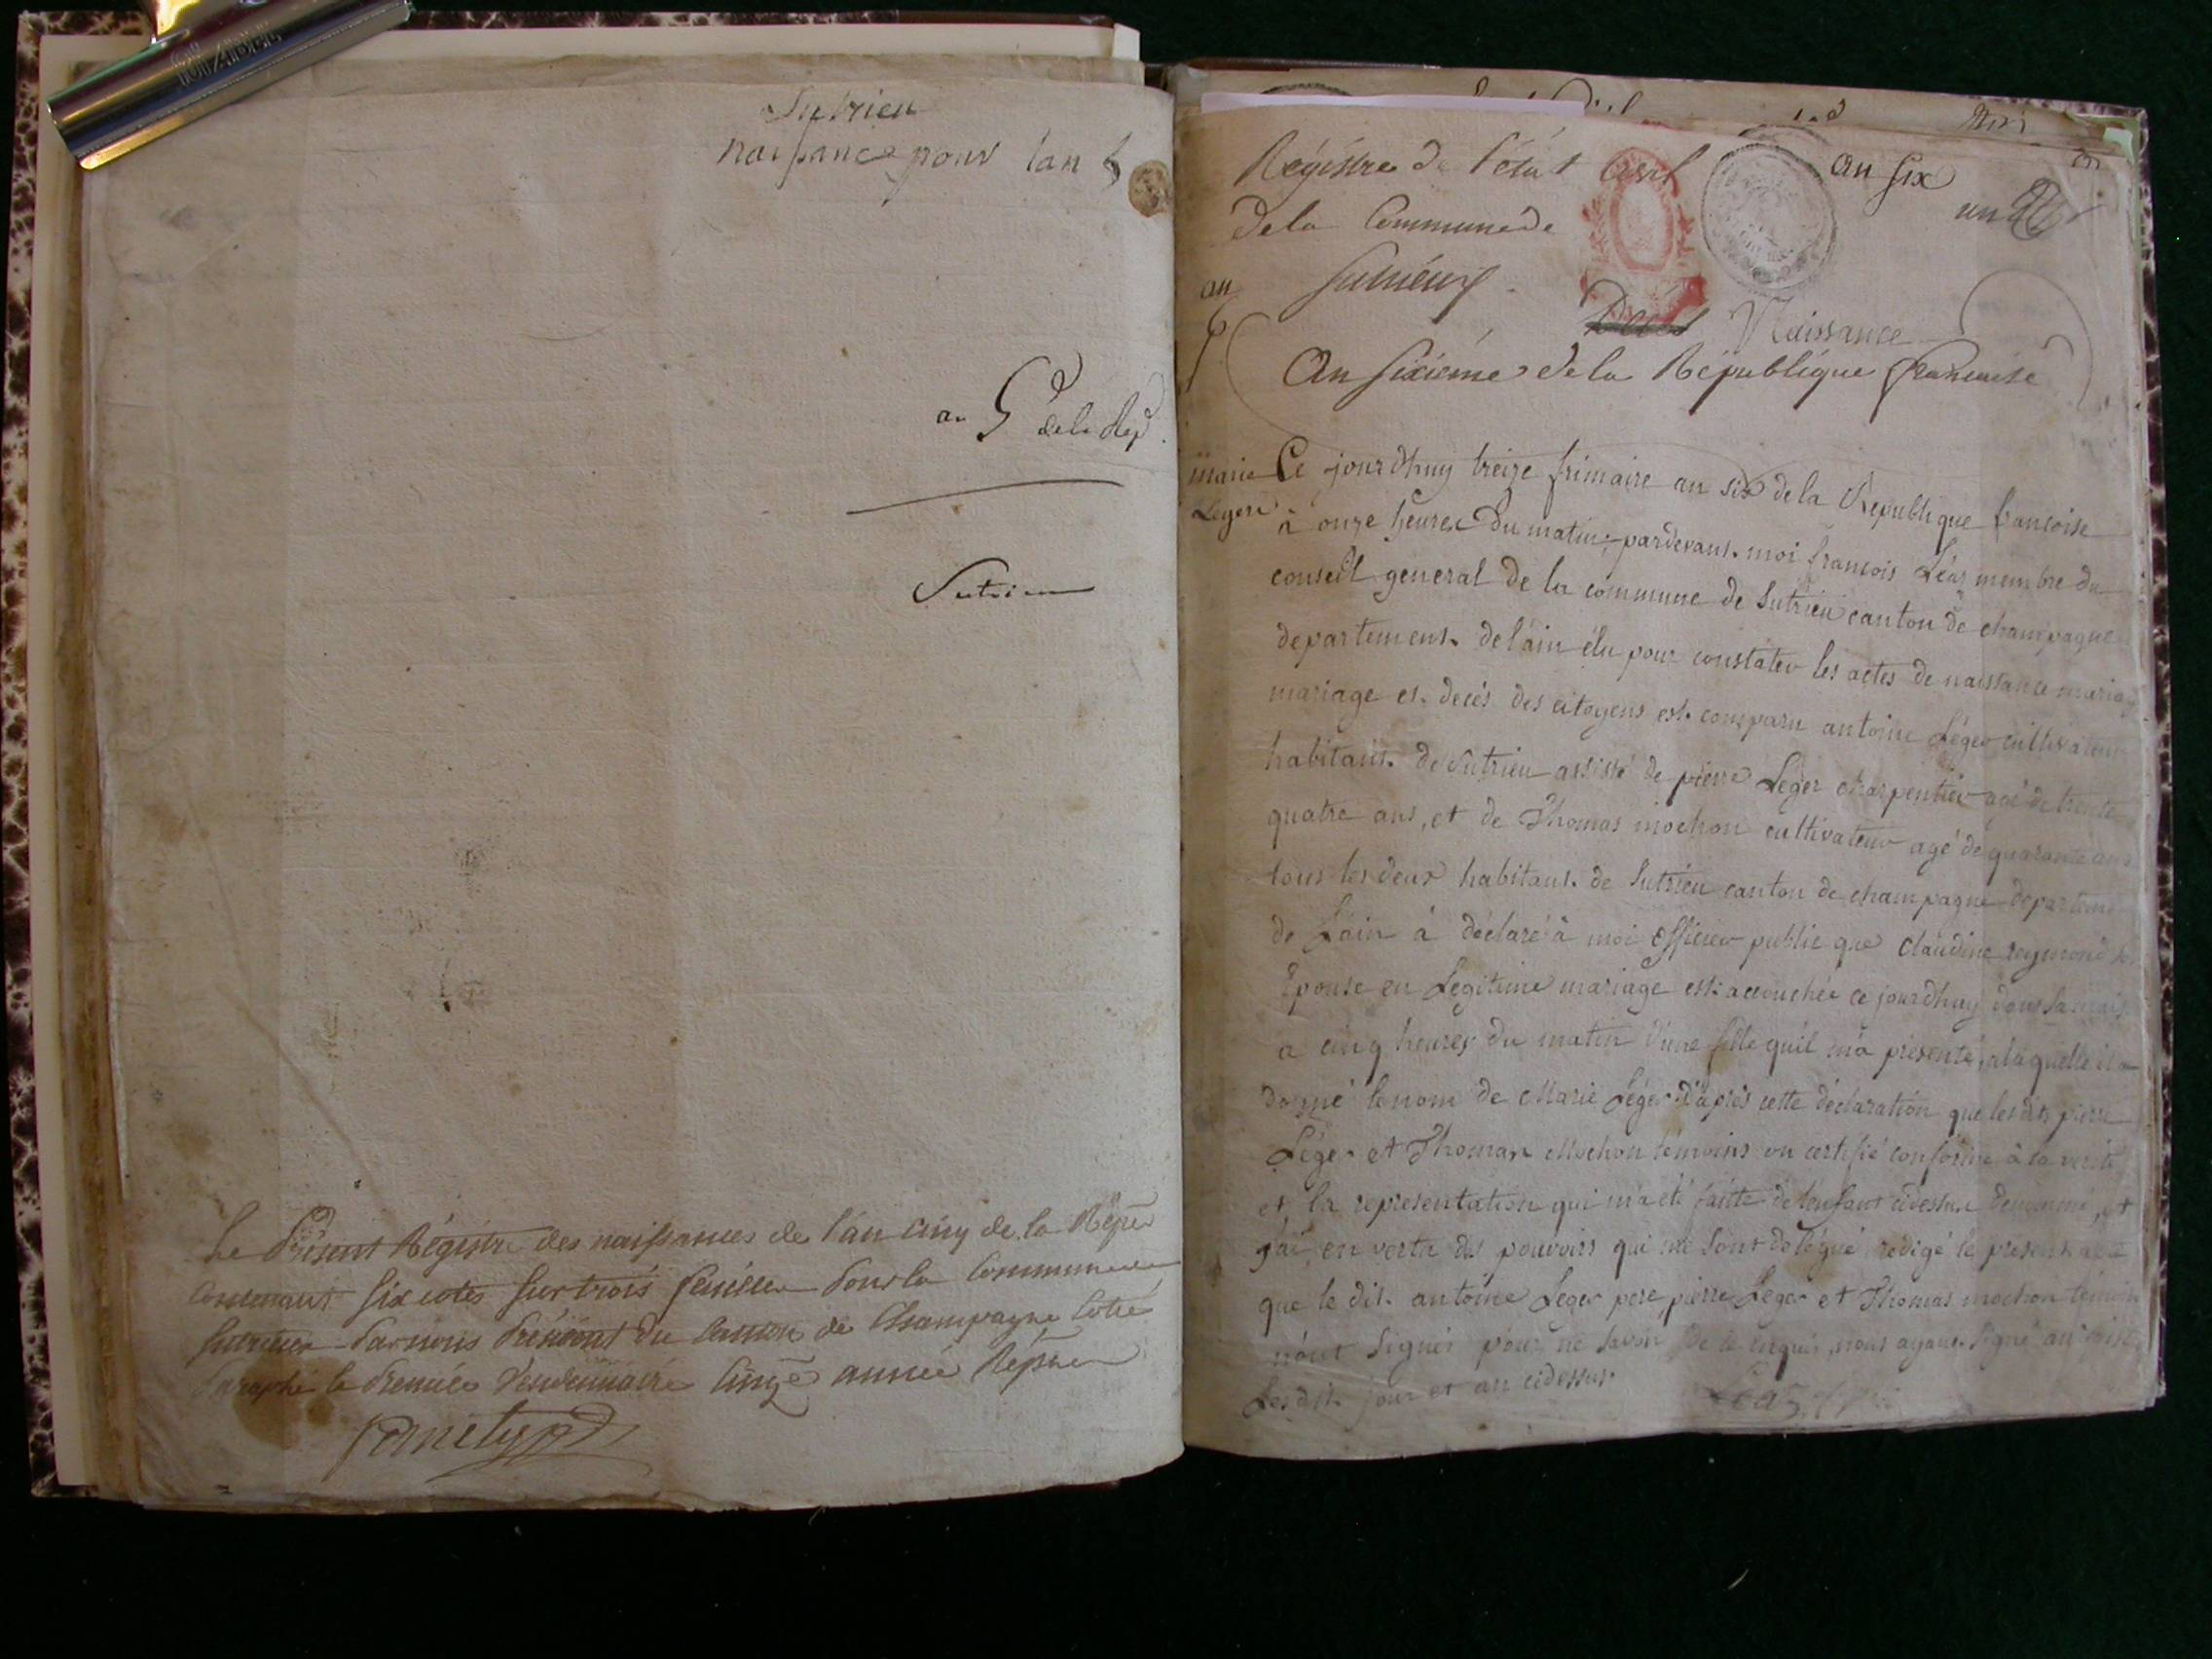 Sutrieu
naissance pour lan 5
an 5e dela Rep.
Sutrieu
Le Présent Régistre des naissances de l'an cinq de la Répu
Contenant six cotes sur trois feuilles pour la Commune de
Sutrieu par nous Président du Canton de Champagne Coté
Paraphé le Premier Vendemiaire Cinqe année Répne
Régistre de l'état civil
an six
dela Commune de
un
Sutrieux
an
6
Décès Naissance
An sixiéme dela République francaise
marie
Leger
Ce jourdhuy treize frimaire an six dela Republique francoise
à onze heures du matin, pardevant moi francois Léaz membre du
conseil general de la commune de Sutrieu canton de champagne
departement de l'ain élu pour constater les actes de naissance mariag
mariage et decés des citoyens est comparu antoine Léger cultivateur
habitant de Sutrieu assisté de pierre Léger charpentier agé de trente
quatre ans, et de Thomas mochon cultivateur agé de quarante ans
tous les deux habitant de Sutrieu canton de champagne departem
de Lain à déclaré à moi officier public que claudine reymond
Epouse en Legitime mariage est accouchée ce jourdhuy dans sa mais
a cinq heures du matin d'une fille quil m'a presenté, alaquelle il a
donné le nom de Marie Léger d'aprés cette déclaration que lesdits pierre
Léger et Thomas Mochon temoins on certifié conforme à la verité
et la representation qui m'a eté faitte de l'enfant cidessus denommé, et
j'ai, en vertu des pouvoirs qui me sont delégué rédigé le present acte
que le dit antoine Leger pere, pierre Leger et Thomas mochon temoin
n'ont signer pour ne savoir de ce enquis, nous ayant signé au
Lesdit jour et an cidessus.
Léaz